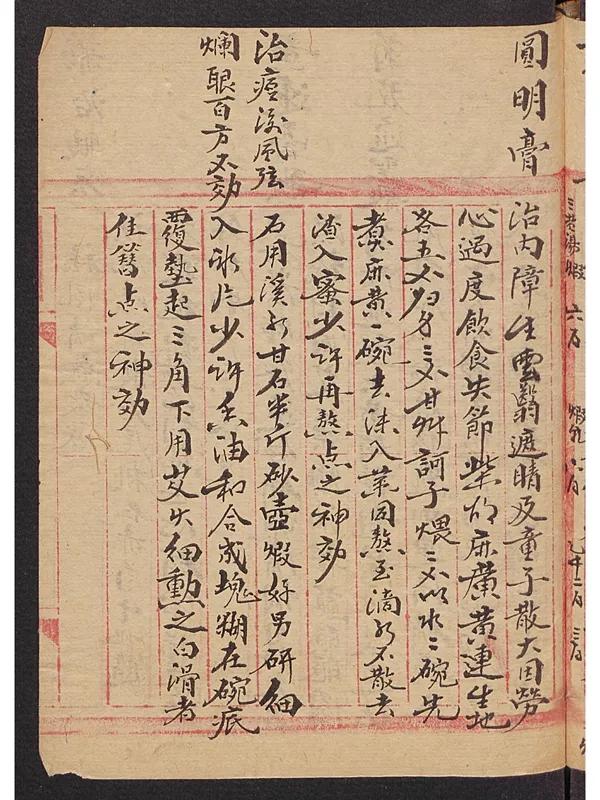 圓明膏
治內障生雲翳遮睛及童子散大因勞
心過度飲食失節柴胡麻黃黃連生地
各五分歸身三分甘艸訶子煨二分以水二碗先
煑麻黃一碗去沫入藥同熬至滴水不散去
渣入蜜少許再熬点之神効
治痘後風弦
爛眼百方不効
石用溪水甘石半斤砂壺煅好另研細
入冰片少許香油和合成塊糊在碗底
覆墊起三角下用艾火細勳之白滑者
佳簪点之神効